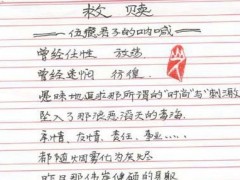 救赎
——伍瘾君子的呐喊
曾经任性 放荡
曾经迷惘 彷徨
愚昧地追求那所谓的“时尚”与“刺激”
坠入了那浪恶滔天的毒海
亲情、友情、责任、事业……
都随烟雾化为灰烬
昨日那伟岸健硕的身躯